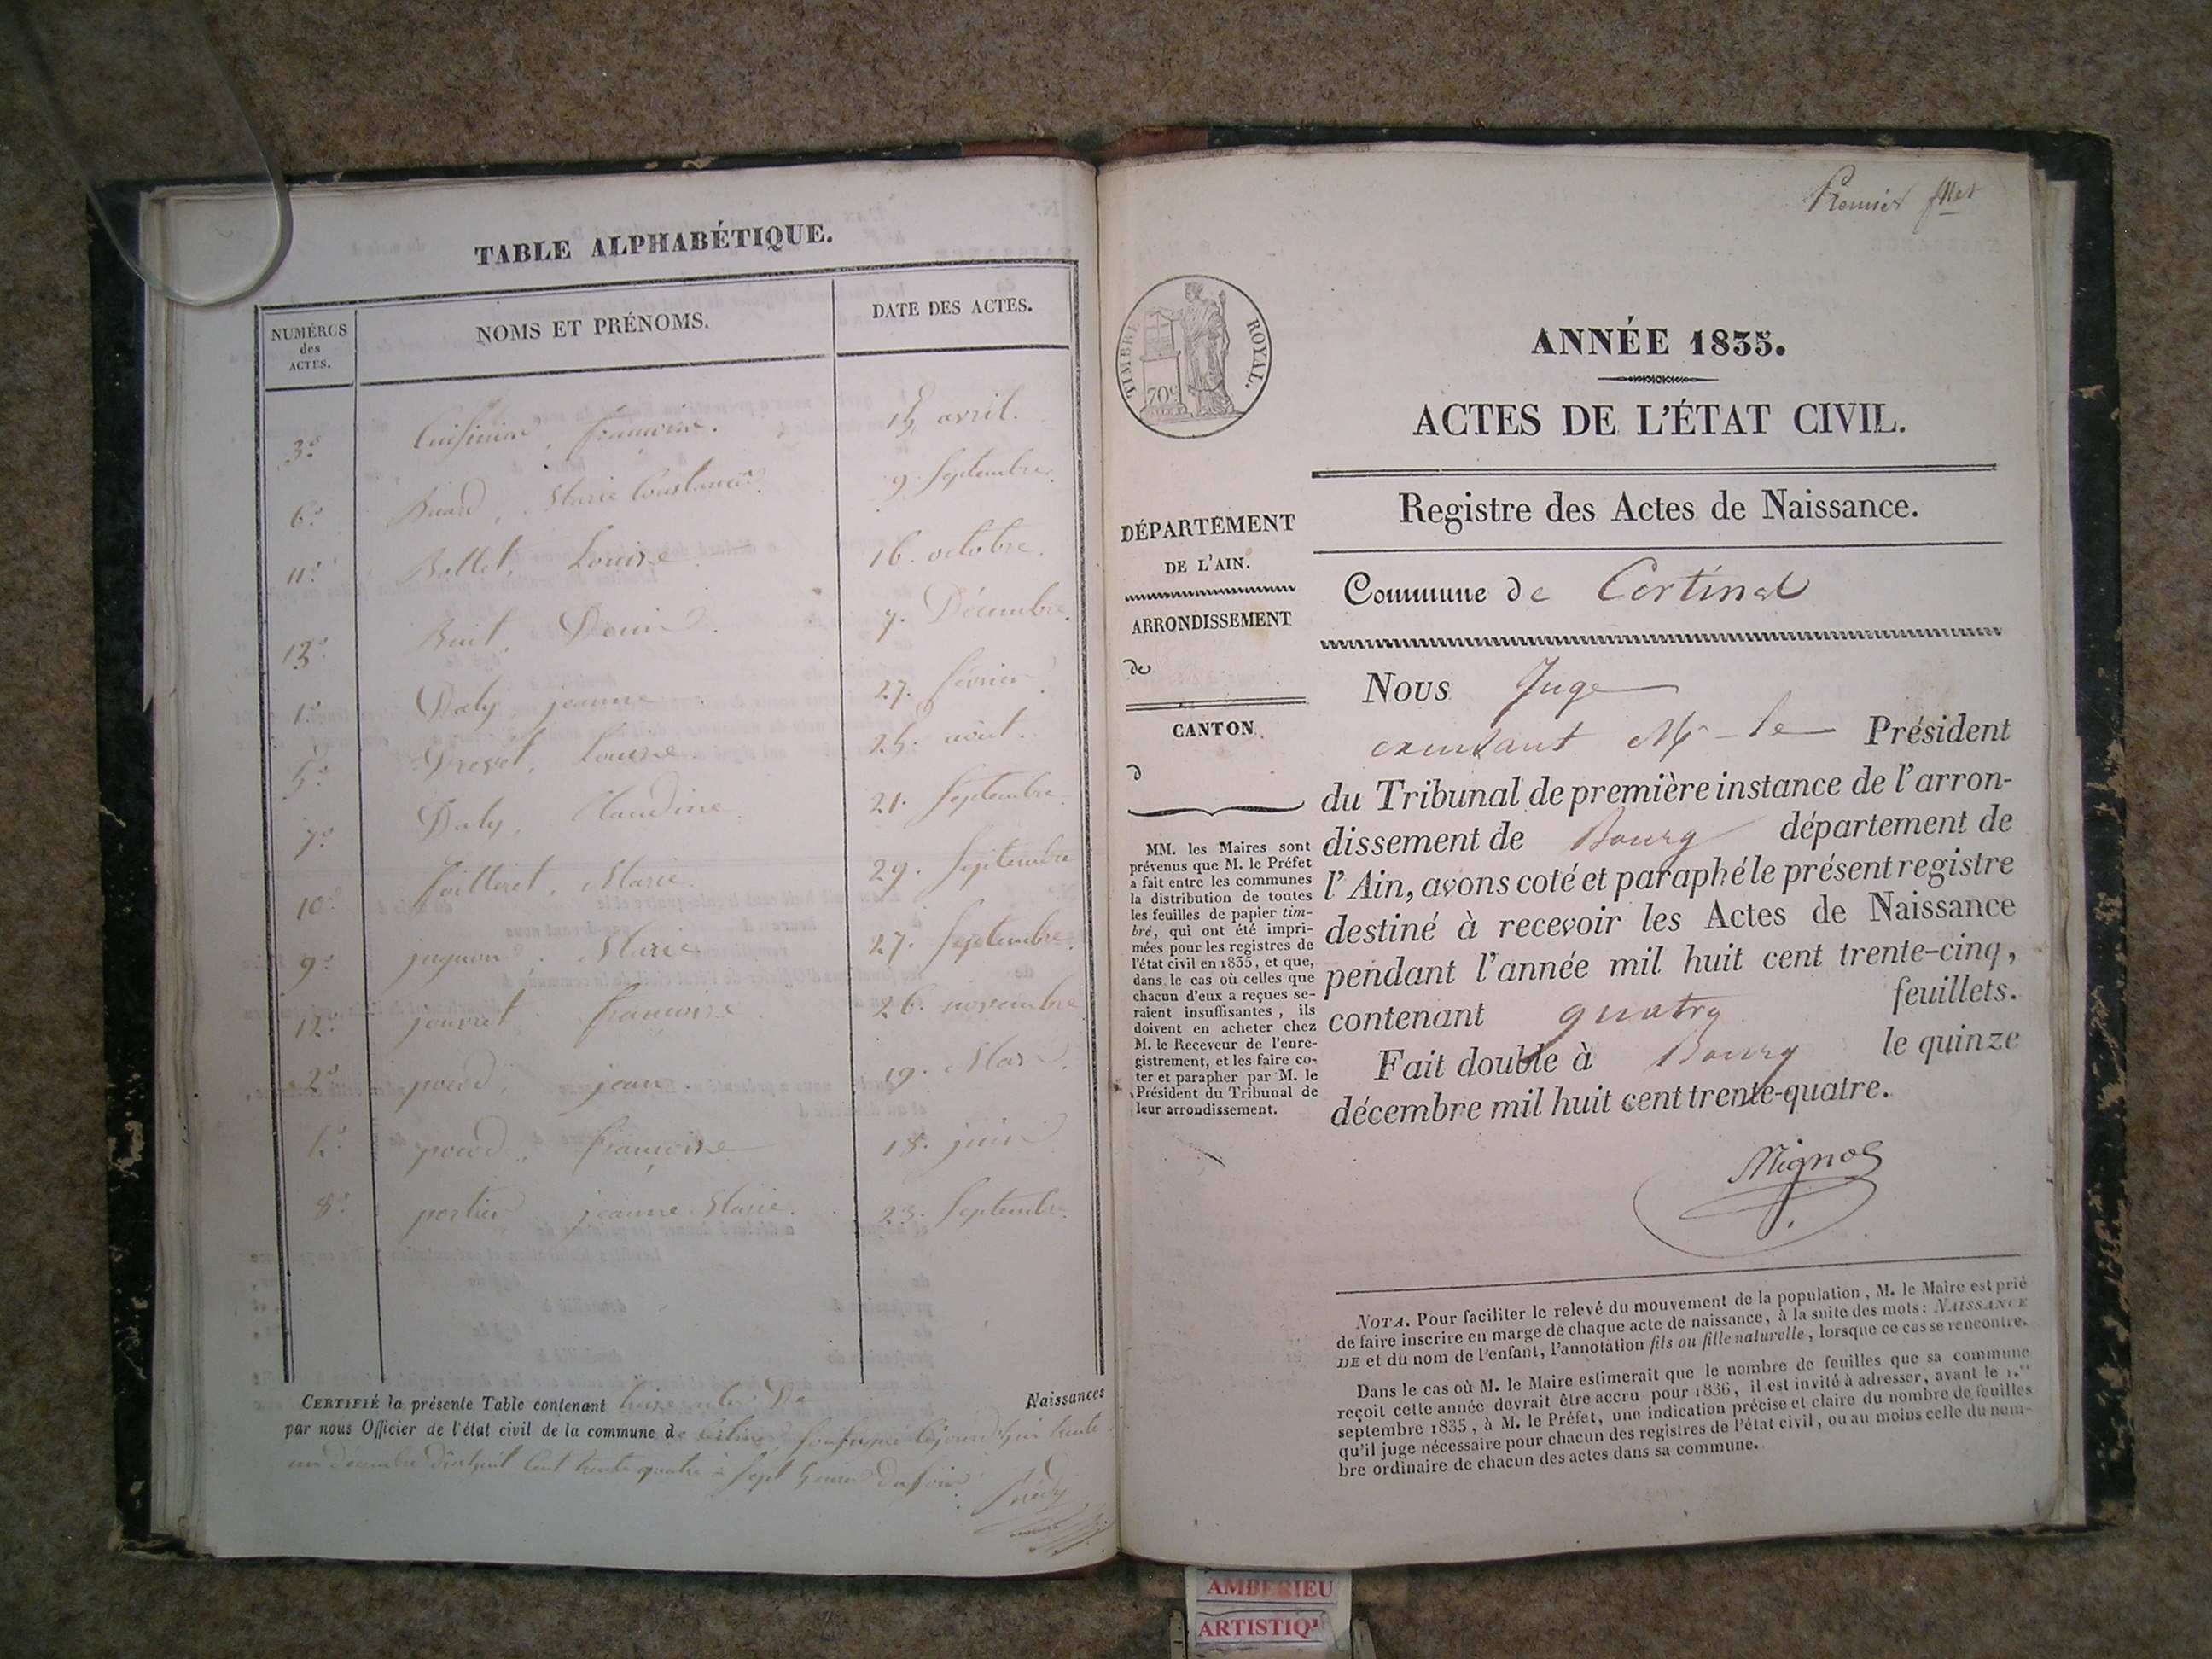 TABLE ALPHABÉTIQUE.
NUMÉROS
des
ACTES.
NOMS ET PRÉNOMS.
DATE DES ACTES.
3.° françoise. 15 avril.
6.° Marie 9 Septembre.
11.° Bollet, Louise 16. octobre.
13° 7. Décembre.
1.° Daly jeanne 27. février
5.° Drevet, Louise 25. août.
7.° Daly, Claudine 21. Septembre
10.° Marie 29. Septembre
9.° Marie 27. Septembre.
12.° jouvret françoise 26. novembre
2.° jean 19. Mars
françoise 18. juin
8.° portier jeanne Marie. 23. Septembre.
CERTIFIÉ la présente Table contenant Naissances
par nous Officier de l'état civil de la commune de
un décembre cent trente quatre à Sept heures
Premier
TIMBRE ROYAL.
70c
ANNÉE 1835.
ACTES DE L'ÉTAT CIVIL.
Registre des Actes de Naissance.
Commune de Certines
DÉPARTEMENT
DE L'AIN.
ARRONDISSEMENT
de
CANTON
d
MM. les Maires sont
prévenus que M. le Préfet
a fait entre les communes
la distribution de toutes
les feuilles de papier tim-
bré, qui ont été impri-
mées pour les registres de
l'état civil en 1835, et que,
dans le cas où celles que
chacun d'eux a reçues se-
raient insuffisantes, ils
doivent en acheter chez
M. le Receveur de l'enre-
gistrement, et les faire co-
ter et parapher par M. le
Président du Tribunal de
leur arrondissement.
Nous Juge
M. le Président
du Tribunal de première instance de l'arron-
dissement de Bourg département de
l'Ain, avons coté et paraphé le présent registre
destiné à recevoir les Actes de Naissance
pendant l'année mil huit cent trente-cinq,
contenant quatre feuillets.
Fait double à Bourg le quinze
décembre mil huit cent trente-quatre.
NOTA. Pour faciliter le relevé du mouvement de la population, M. le Maire est prié
de faire inscrire en marge de chaque acte de naissance, à la suite des mots: NAISSANCE
DE et du nom de l'enfant, l'annotation fils ou fille naturelle, lorsque ce cas se rencontre.
Dans le cas où M. le Maire estimerait que le nombre de feuilles que sa commune
reçoit cette année devrait être accru pour 1836, il est invité à adresser, avant le 1.er
septembre 1835, à M. le Préfet, une indication précise et claire du nombre de feuilles
qu'il juge nécessaire pour chacun des registres de l'état civil, ou au moins celle du nom-
bre ordinaire de chacun des actes dans sa commune.
AMBERIEU
ARTISTIQ